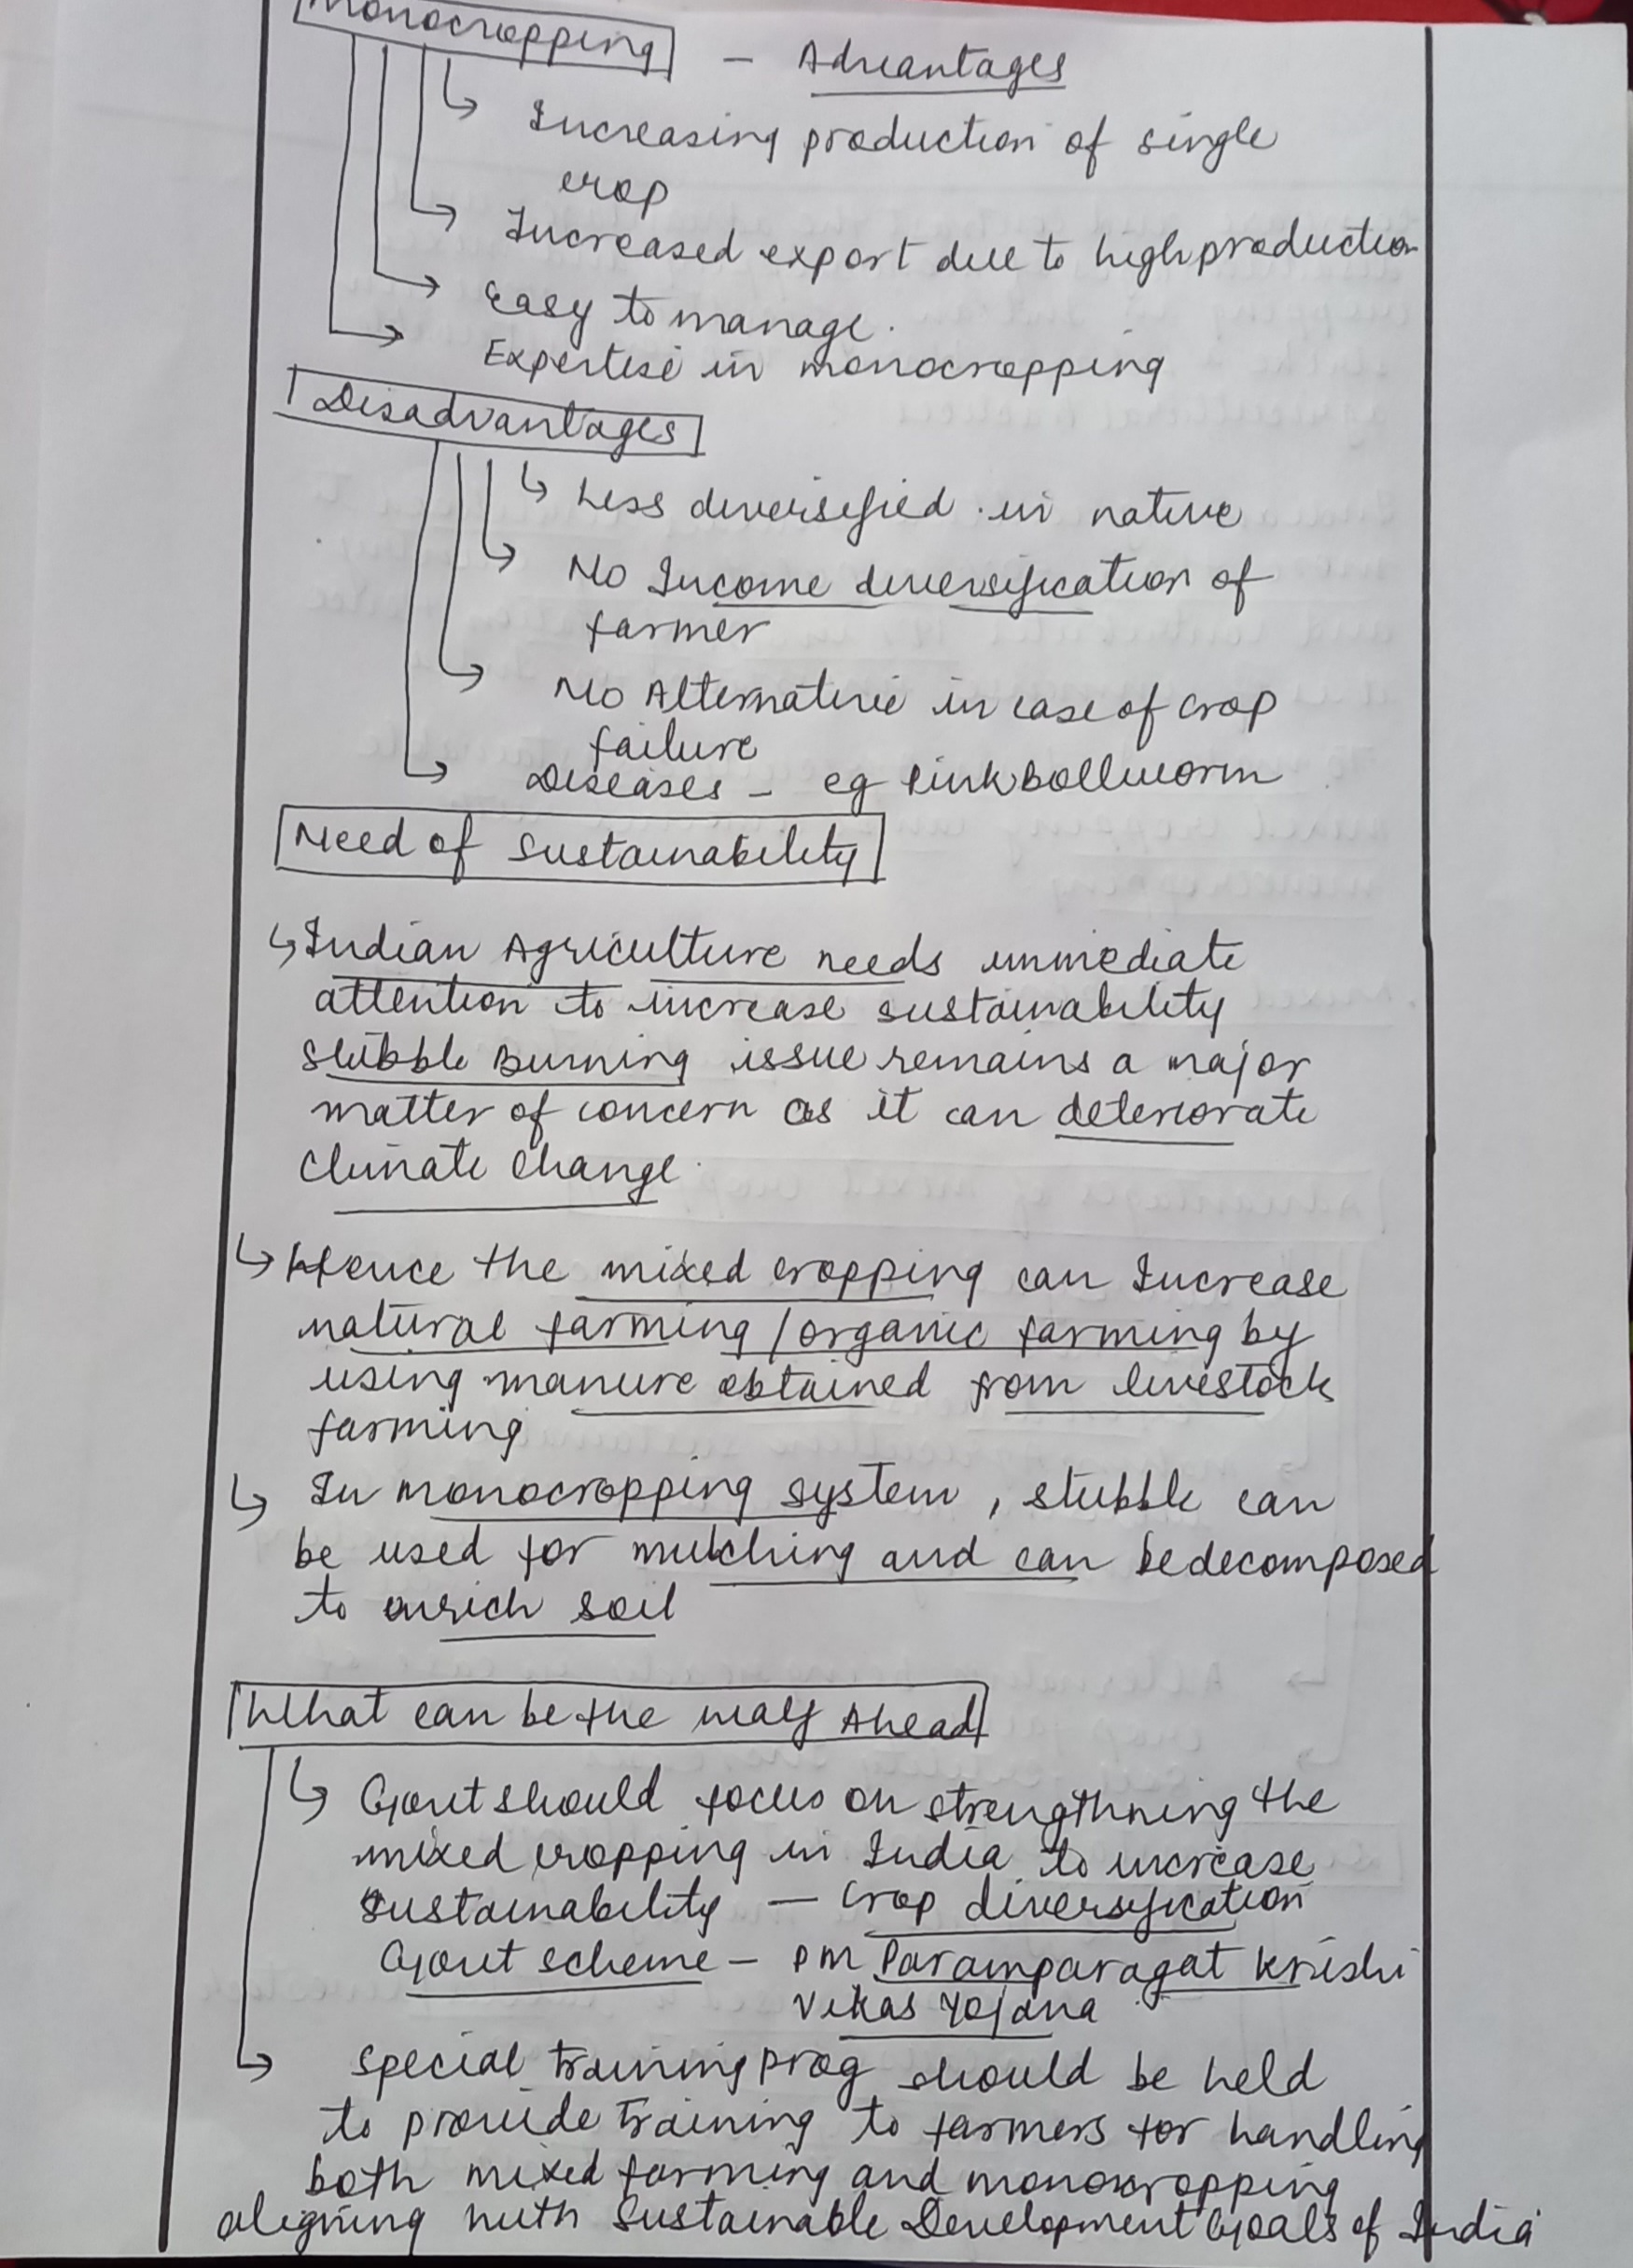 Monocropping - Advantages
Increasing production of single
crop
Increased export due to high production
Easy to manage.
Expertise in monocropping
Disadvantages
Less diversified in native
No Income diversification of
farmer
No Alternative in case of crop
failure
Diseases - eg Pink bollworm
Need of sustainability
Indian Agriculture needs immediate
attention to increase sustainability
Stubble Burning issue remains a major
matter of concern as it can deteriorate
climate change.
Hence the mixed cropping can Increase
natural farming / organic farming by
using manure obtained from livestock
farming
In monocropping system, stubble can
be used for mulching and can be decomposed
to enrich soil
What can be the way Ahead
Govt should focus on strengthning the
mixed cropping in India to increase
sustainability - crop diversification
Govt scheme - PM Paramparagat Krishi
Vikas Yojana
special training prog should be held
to provide training to farmers for handling
both mixed farming and monocropping
aligning with Sustainable Development Goals of India